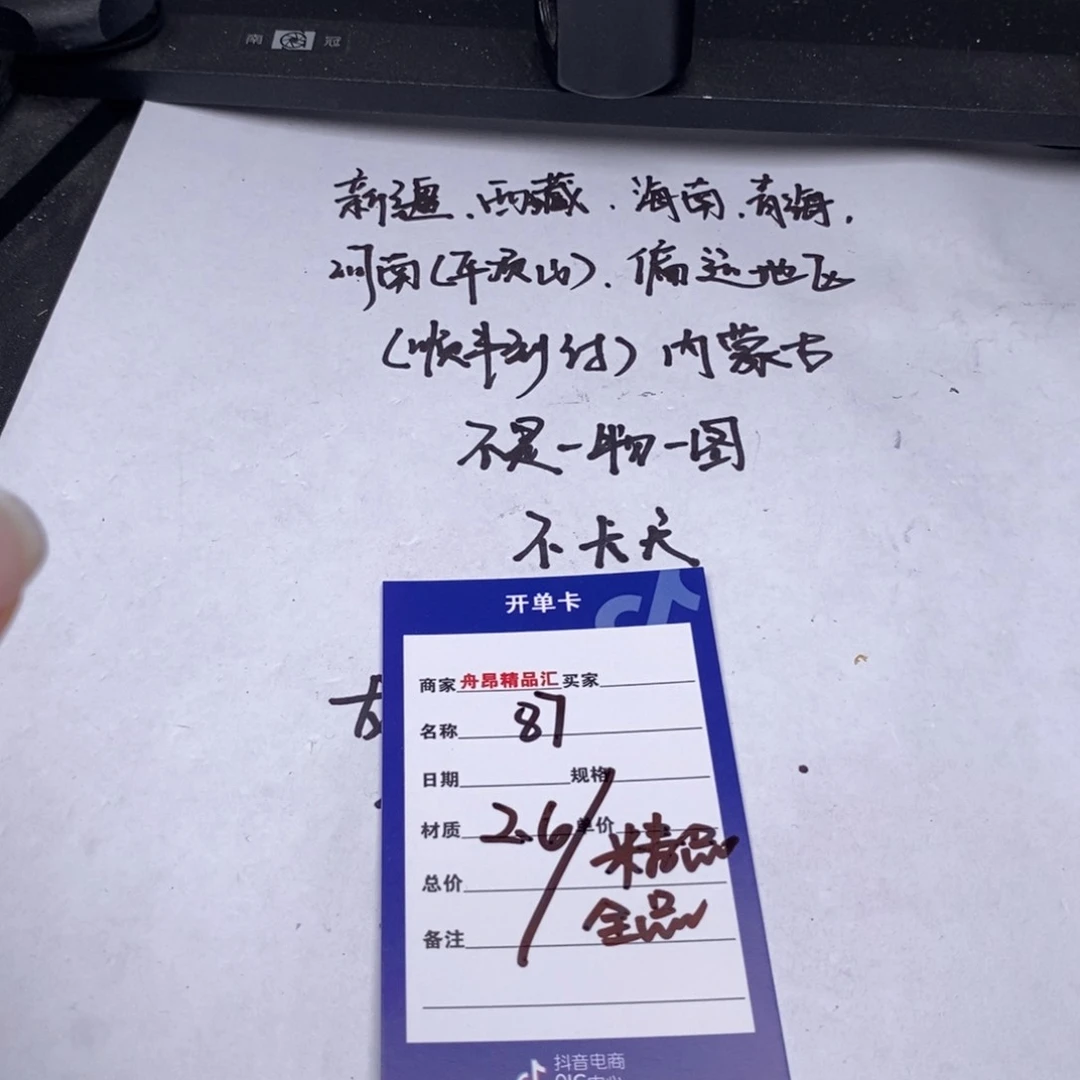 南 冠
新疆、西藏、海南、青海、
河南(平顶山)、偏远地区
(顺丰到付)内蒙古
不是一物一图
不卡
开单卡
商家 舟昂精品汇 买家
名称 87
日期 规格
材质 2.6/ 单价 精品
总价
全品
备注
抖音电商
QIC中心